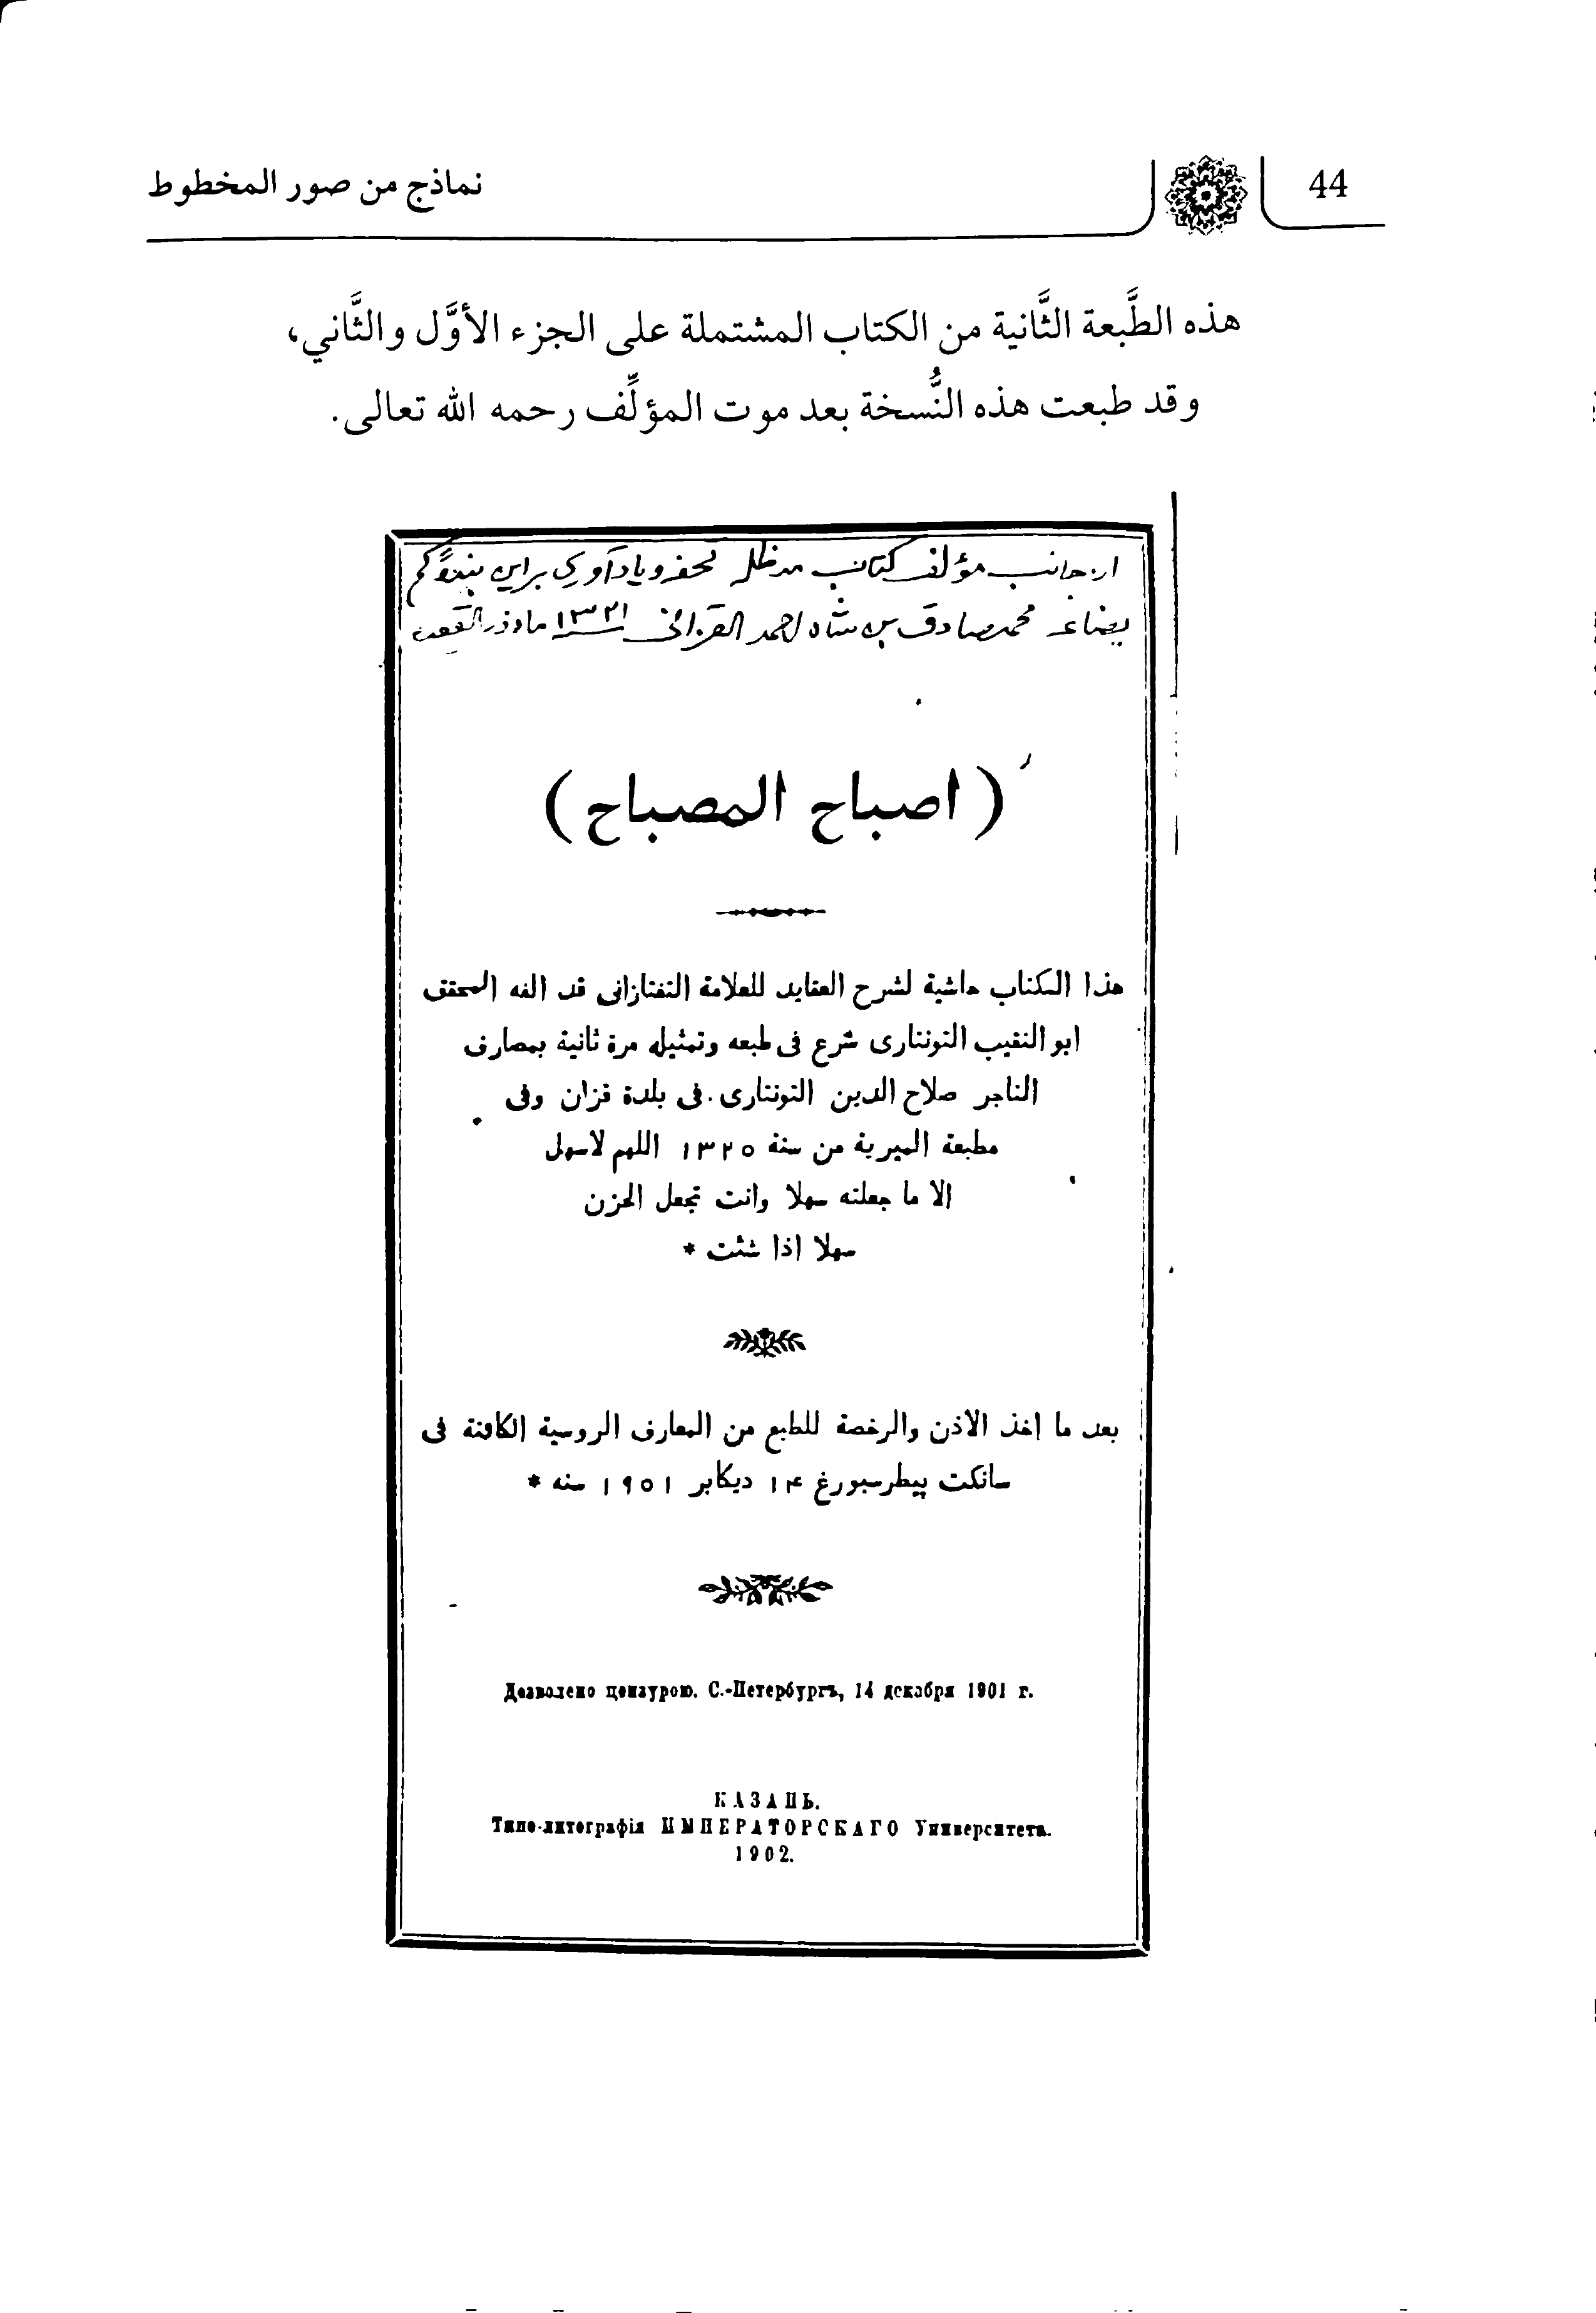 44
نماذج من صور المخطوط
هذه الطَّبعة الثَّانية من الكتاب المشتملة على الجزء الأوَّل والثَّاني،
وقد طبعت هذه النُّسخة بعد موت المؤلِّف رحمه الله تعالى.
از جانب مؤلف كتاب مد ظله تحفه و ياد آورى براين بنده كم
بضاعه محمد صادق بن شاه احمد القزانى ١٣٢١ ماه ذى القعده
( اصباح المصباح )
هذا الكتاب حاشية لشرح العقايد للعلامة التفتازانى قد الفه المحقق
ابو النقيب التونتارى شرع فى طبعه وتمثيله مرة ثانية بمصارف
التاجر صلاح الدين التونتارى فى بلدة قزان وفى
مطبعة الميرية من سنة ١٣٢٥ اللهم لاسهل
الا ما جعلته سهلا وانت تجعل الحزن
سهلا اذا شئت *
بعد ما اخذ الاذن والرخصة للطبع من المعارف الروسية الكائنة فى
سانكت پيطرسبورغ ١۴ ديكابر ١٩٥١ سنه *
Дозволено цензурою. С.-Петербургъ, 14 декабря 1901 г.
КАЗАНЬ.
Типо-литографія ИМПЕРАТОРСКАГО Университета.
1902.